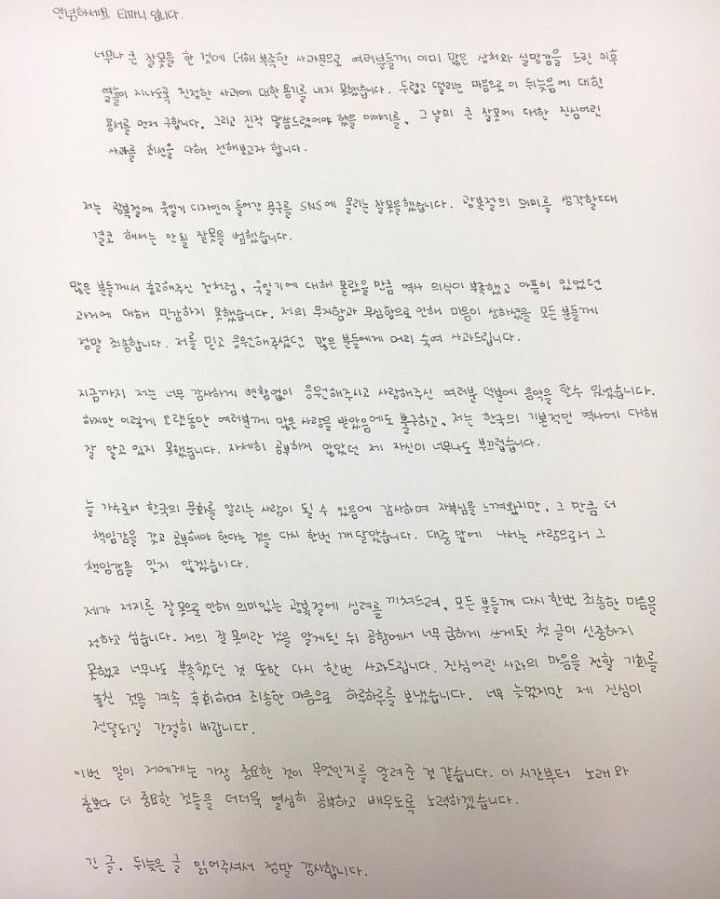 안녕하세요 티파니 입니다.
너무나 큰 잘못을 한 것에 더해 부족한 사과문으로 여러분들께 이미 많은 상처와 실망감을 드린 이후
열흘이 지나도록 진정한 사과에 대한 용기를 내지 못했습니다. 두렵고 떨리는 마음으로 이 뒤늦음에 대한
용서를 먼저 구합니다. 그리고 진작 말씀드렸어야 했을 이야기를, 그 날의 큰 잘못에 대한 진심어린
사과를 최선을 다해 전해보고자 합니다.
저는 광복절에 욱일기 디자인이 들어간 문구를 SNS에 올리는 잘못을 했습니다. 광복절의 의미를 생각할때
결코 해서는 안될 잘못을 범했습니다.
많은 분들께서 충고해주신 것처럼, 욱일기에 대해 몰랐을 만큼 역사 의식이 부족했고 아픔이 있었던
과거에 대해 민감하지 못했습니다. 저의 무지함과 무심함으로 인해 마음이 상하셨을 모든 분들께
정말 죄송합니다. 저를 믿고 응원해주셨던 많은 분들에게 머리 숙여 사과드립니다.
지금까지 저는 너무 감사하게 변함없이 응원해주시고 사랑해주신 여러분 덕분에 음악을 할수 있었습니다.
하지만 이렇게 오랫동안 여러분께 많은 사랑을 받았음에도 불구하고, 저는 한국의 기본적인 역사에 대해
잘 알고 있지 못했습니다. 자세히 공부하지 않았던 제 자신이 너무나도 부끄럽습니다.
늘 가수로서 한국의 문화를 알리는 사람이 될 수 있음에 감사하며 자부심을 느껴왔지만, 그 만큼 더
책임감을 갖고 공부해야 한다는 것을 다시 한번 깨달았습니다. 대중 앞에 나서는 사람으로서 그
책임감을 잊지 않겠습니다.
제가 저지른 잘못으로 인해 의미있는 광복절에 심려를 끼쳐드려, 모든 분들께 다시 한번 죄송한 마음을
전하고 싶습니다. 저의 잘못이란 것을 알게된 뒤 공항에서 너무 급하게 쓰게된 첫 글이 신중하지
못했고 너무나도 부족했던 것 또한 다시 한번 사과드립니다. 진심어린 사과의 마음을 전할 기회를
놓친 것을 계속 후회하며 죄송한 마음으로 하루하루를 보냈습니다. 너무 늦었지만 제 진심이
전달되길 간절히 바랍니다.
이번 일이 저에게는 가장 중요한 것이 무엇인지를 알려준 것 같습니다. 이 시간부터 노래와
춤보다 더 중요한 것들을 더더욱 열심히 공부하고 배우도록 노력하겠습니다.
긴 글, 뒤늦은 글 읽어주셔서 정말 감사합니다.